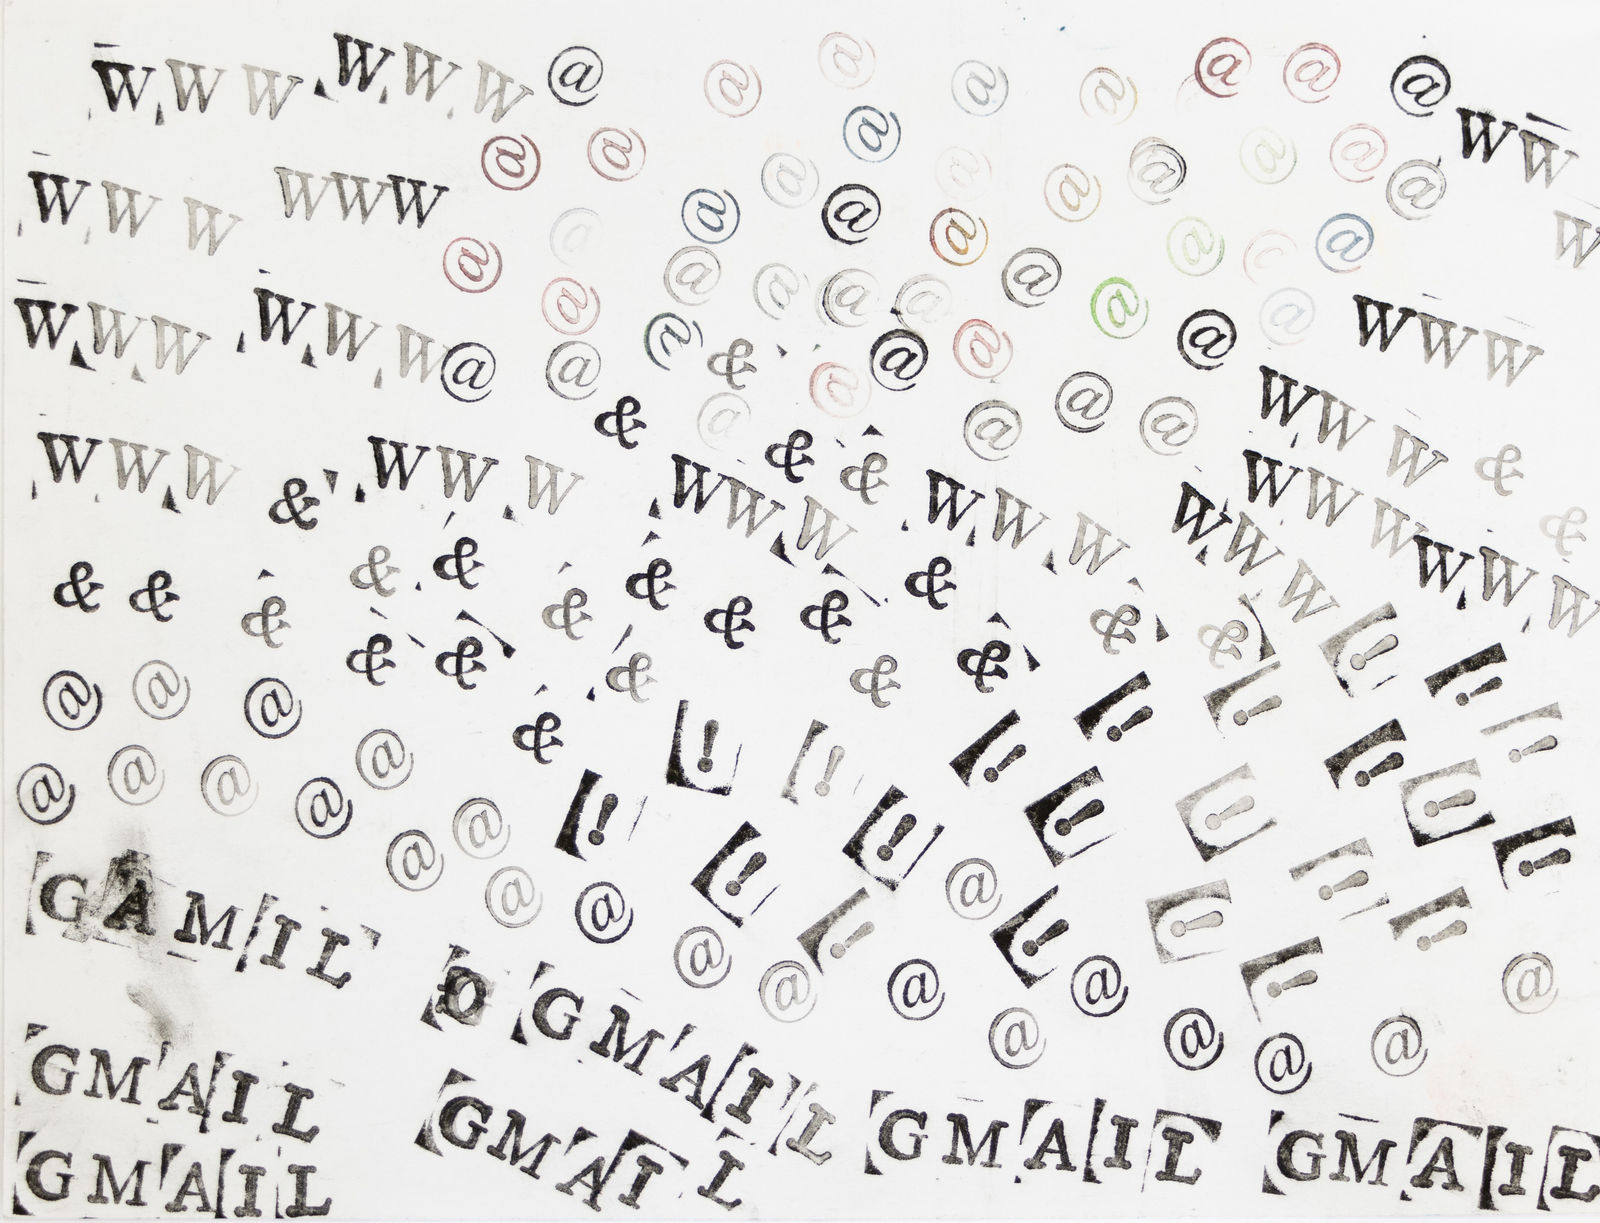 W W W W W W @ @ @ @ @ @ @ @ W W
@ @ @ @ @ @ @ @ @ @
W W W W W W @ @ @ @ @ @ @ @ W
@ @ @ @ @ @ @ @ @ @
W W W W W W @ @ @ & @ @ @ @ W W W
& @ & & @ @ @ W W W &
W W W & W W W W W W W W W W W W W W W &
& & & & & & & & & & W W W
& & & & & & & ! !
@ @ @ & ! ! ! ! ! !
@ @ @ @ @ @ ! ! ! ! ! ! !
@ @ @ ! ! @ ! ! !
GAMIL @ @ ! @ ! @ ! @
GMAIL @ @ @ @
GMAIL
GMAIL
GMAIL
GMAIL
GMAIL